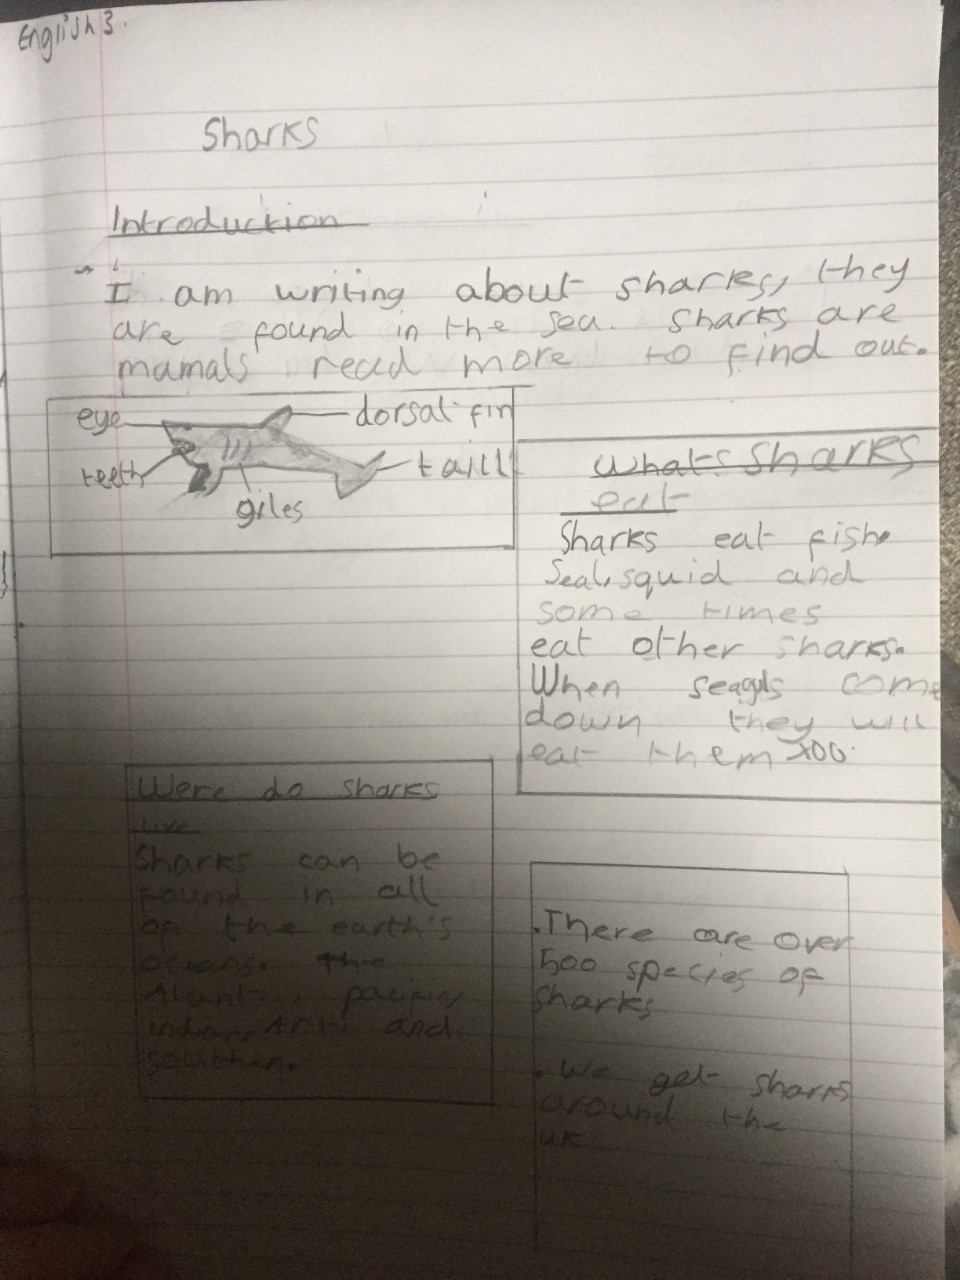 English 3.
Sharks
Introduction
I am writing about sharks, they
are found in the sea. Sharks are
mamals read more to find out.
eye
dorsal fin
teeth
taill
giles
Whats sharks
eat
Sharks eat fish,
Seal, squid and
some times
eat other sharks.
When seaguls come
down they will
eat them too.
Were do sharks
live
Sharks can be
found in all
of the earth's
oceans. The
Alantic, pacific,
indian, Arti and
southen.
. There are over
500 species of
sharks
. We get sharks
around the
uk